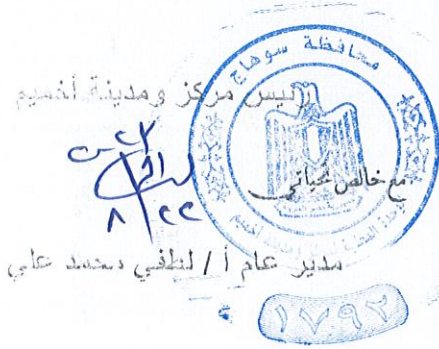 محافظة سوهاج
رئيس مركز ومدينة أخميم
مع خالص تحياتي
٨/٢٢
مدير عام أ / لطفي محمد علي
١٧٩٢